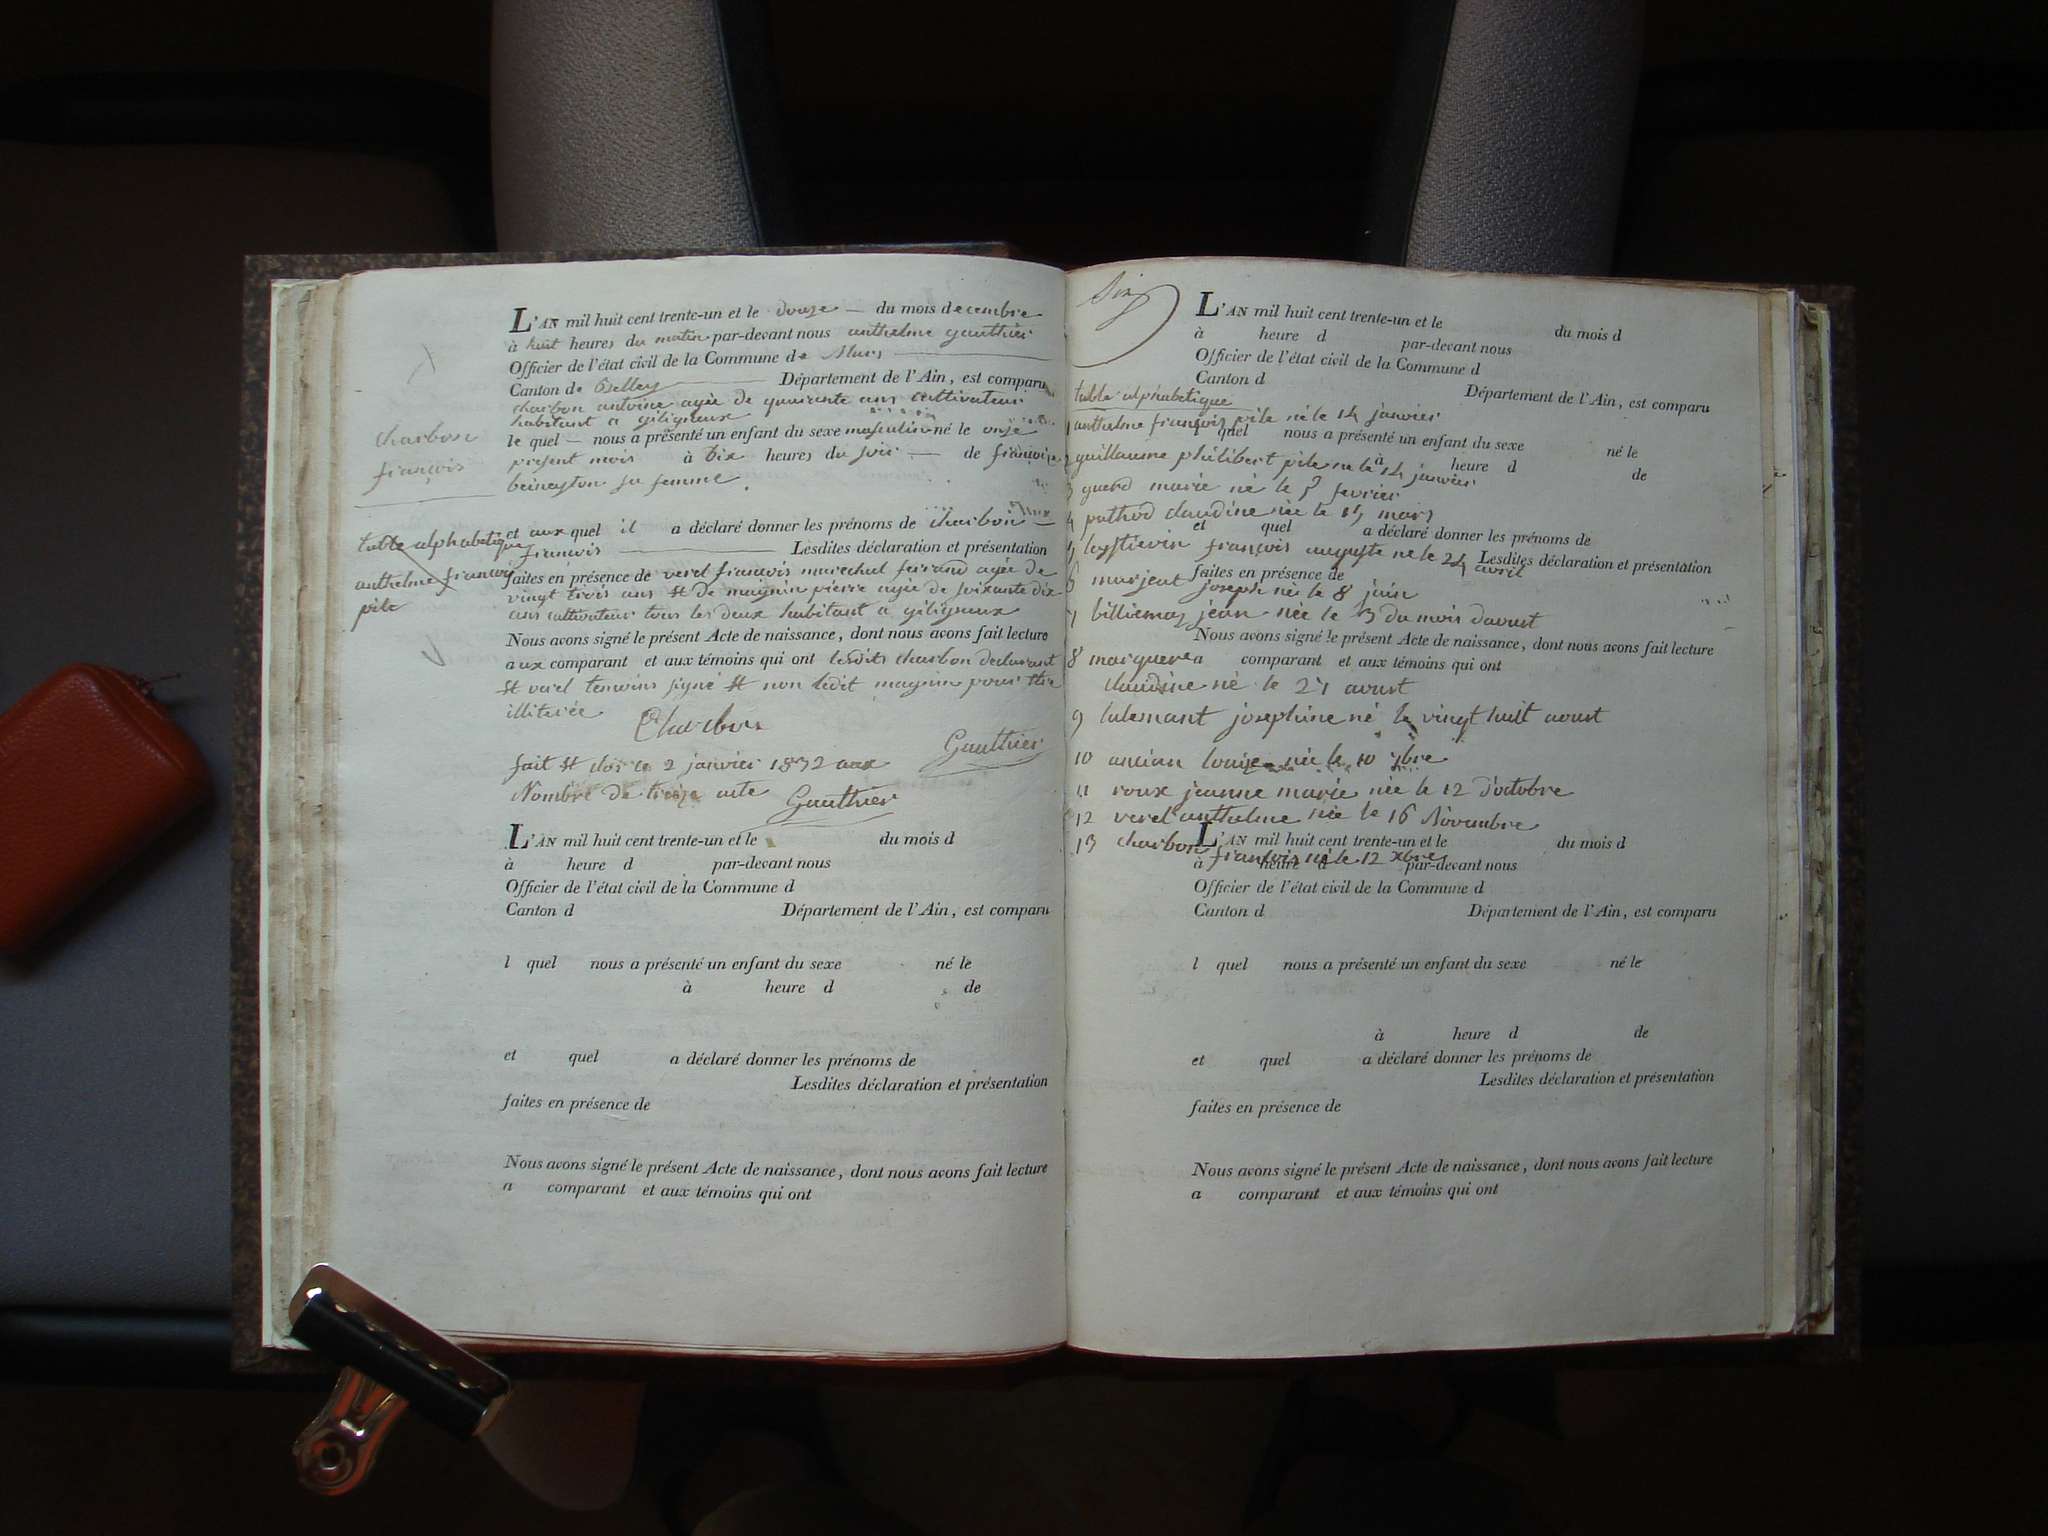 L'AN mil huit cent trente-un et le douze du mois decembre
à huit heures du matin par-devant nous anthelme gauthier
Officier de l'état civil de la Commune de
Canton de Belley Département de l'Ain, est comparu
charbon antoine agée de quarante ans cultivateur
habitant a giligneux
le quel nous a présenté un enfant du sexe masculin né le onze
present mois à Dix heures du soir de françoise
sa femme
charbon
françois
et aux quel il a déclaré donner les prénoms de charbon
françois Lesdites déclaration et présentation
table alphabetique
anthelme françois
pile
faites en présence de verel françois marechal ferrand agée de
vingt trois ans et de magnin pierre agée de soixante dix
ans cultivateur tous les deux habitant a giligneux
Nous avons signé le présent Acte de naissance, dont nous avons fait lecture
aux comparant et aux témoins qui ont lesdits charbon declarant
et verel temoins signé et non ledit magnin pour etre
illiterée
Charbon
Gauthier
fait et clos ce 2 janvier 1832 aux
Nombre de treize acte
Gauthier
L'AN mil huit cent trente-un et le du mois d
à heure d par-devant nous
Officier de l'état civil de la Commune d
Canton d Département de l'Ain, est comparu
l quel nous a présenté un enfant du sexe né le
à heure d de
et quel a déclaré donner les prénoms de
Lesdites déclaration et présentation
faites en présence de
Nous avons signé le présent Acte de naissance, dont nous avons fait lecture
a comparant et aux témoins qui ont
Six
L'AN mil huit cent trente-un et le du mois d
à heure d par-devant nous
Officier de l'état civil de la Commune d
Canton d Département de l'Ain, est comparu
table alphabetique
1 anthelme françois pile né le 14 janvier
l quel nous a présenté un enfant du sexe né le
2 guillaume philibert pile né le 14 janvier
à heure d de
3 guerd marie né le 5 fevrier
4 pathod claudine née le 15 mars
et quel a déclaré donner les prénoms de
5 françois auguste né le 24 avril
Lesdites déclaration et présentation
faites en présence de
6 marjeat joseph né le 8 juin
7 billiemaz jean née le 13 du mois daoust
Nous avons signé le présent Acte de naissance, dont nous avons fait lecture
8 a comparant et aux témoins qui ont
claudine né le 21 aoust
9 lalemant josephine né le vingt huit aoust
10 ancian louise née le 10 7bre
11 roux jeanne marie née le 12 d'octobre
12 verel anthelme née le 16 Novembre
L'AN mil huit cent trente-un et le du mois d
13 charbon françois né le 12 xbre
à heure d par-devant nous
Officier de l'état civil de la Commune d
Canton d Département de l'Ain, est comparu
l quel nous a présenté un enfant du sexe né le
à heure d de
et quel a déclaré donner les prénoms de
Lesdites déclaration et présentation
faites en présence de
Nous avons signé le présent Acte de naissance, dont nous avons fait lecture
a comparant et aux témoins qui ont